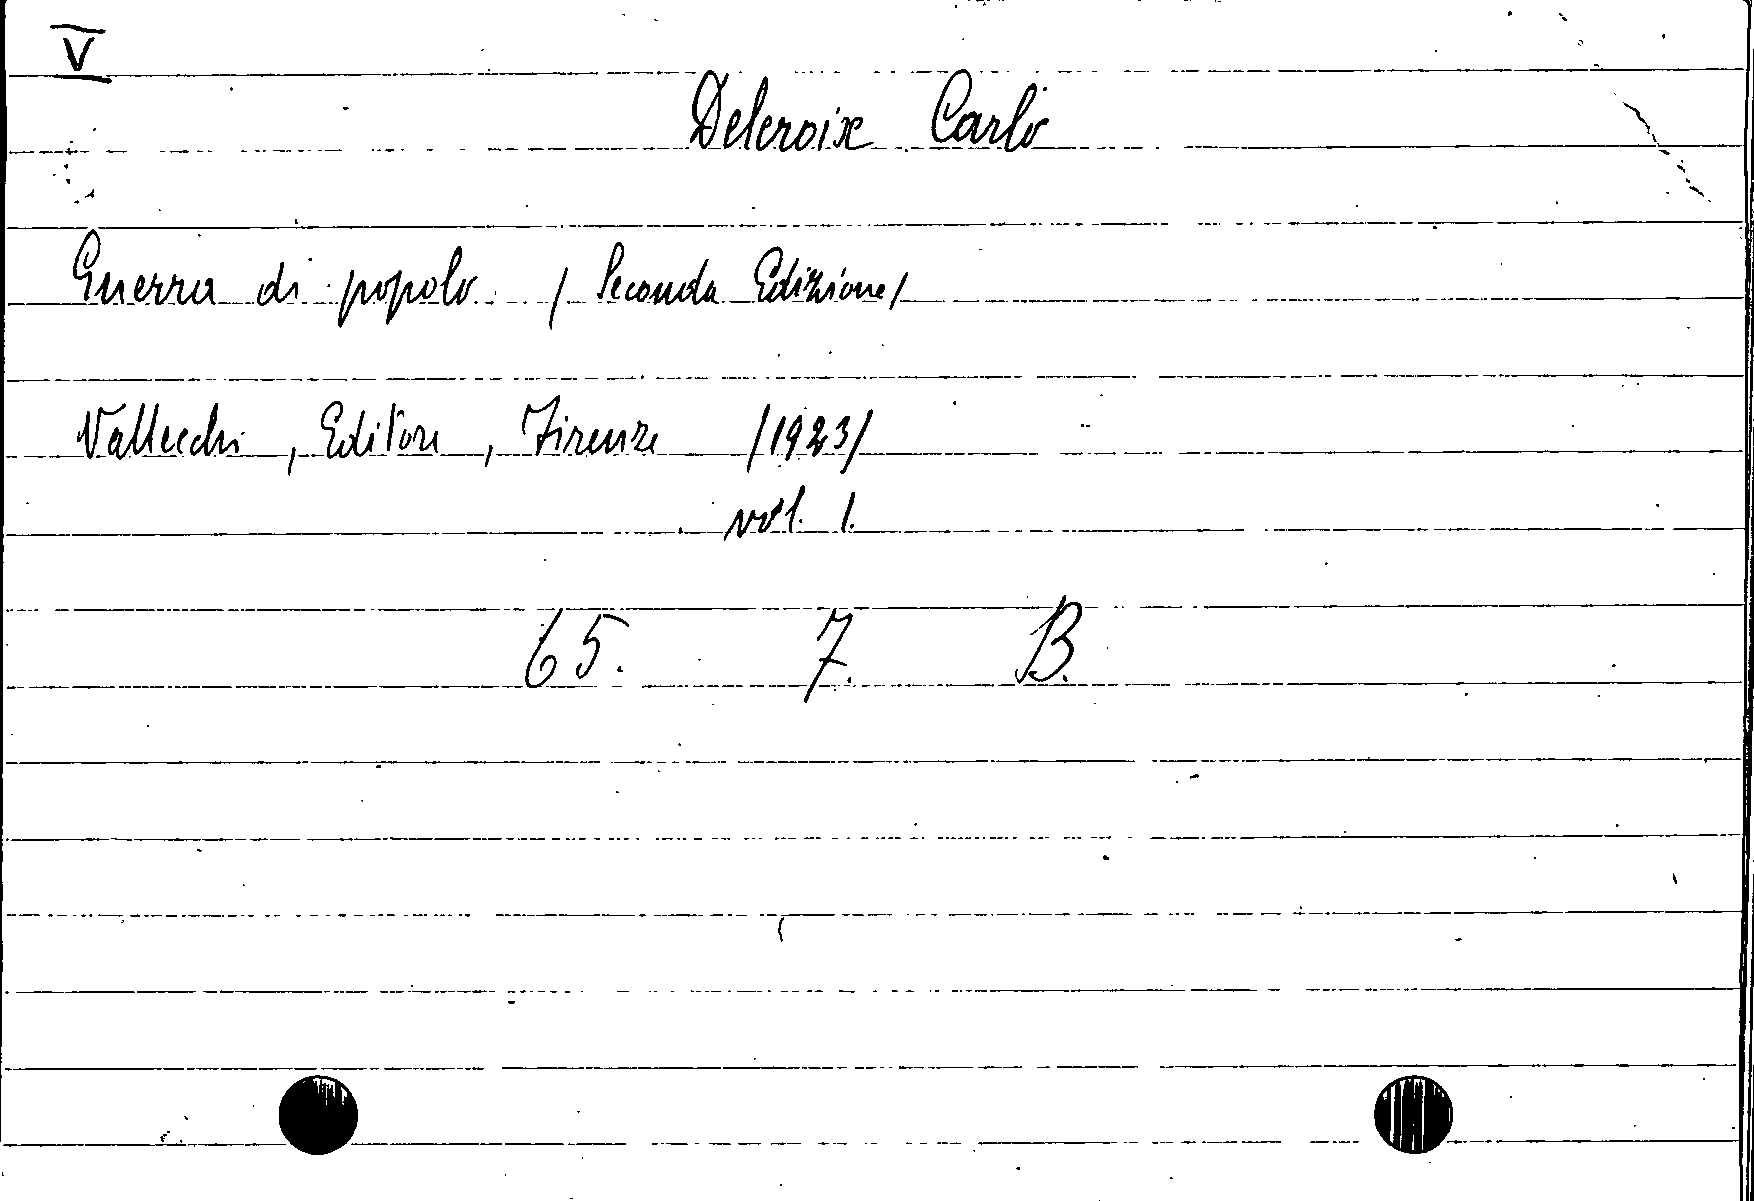 V
Delcroix Carlo
Guerra di popolo / Seconda Edizione/
Vallecchi, Editore, Firenze /1923/
vol. 1.
65. 7. B.